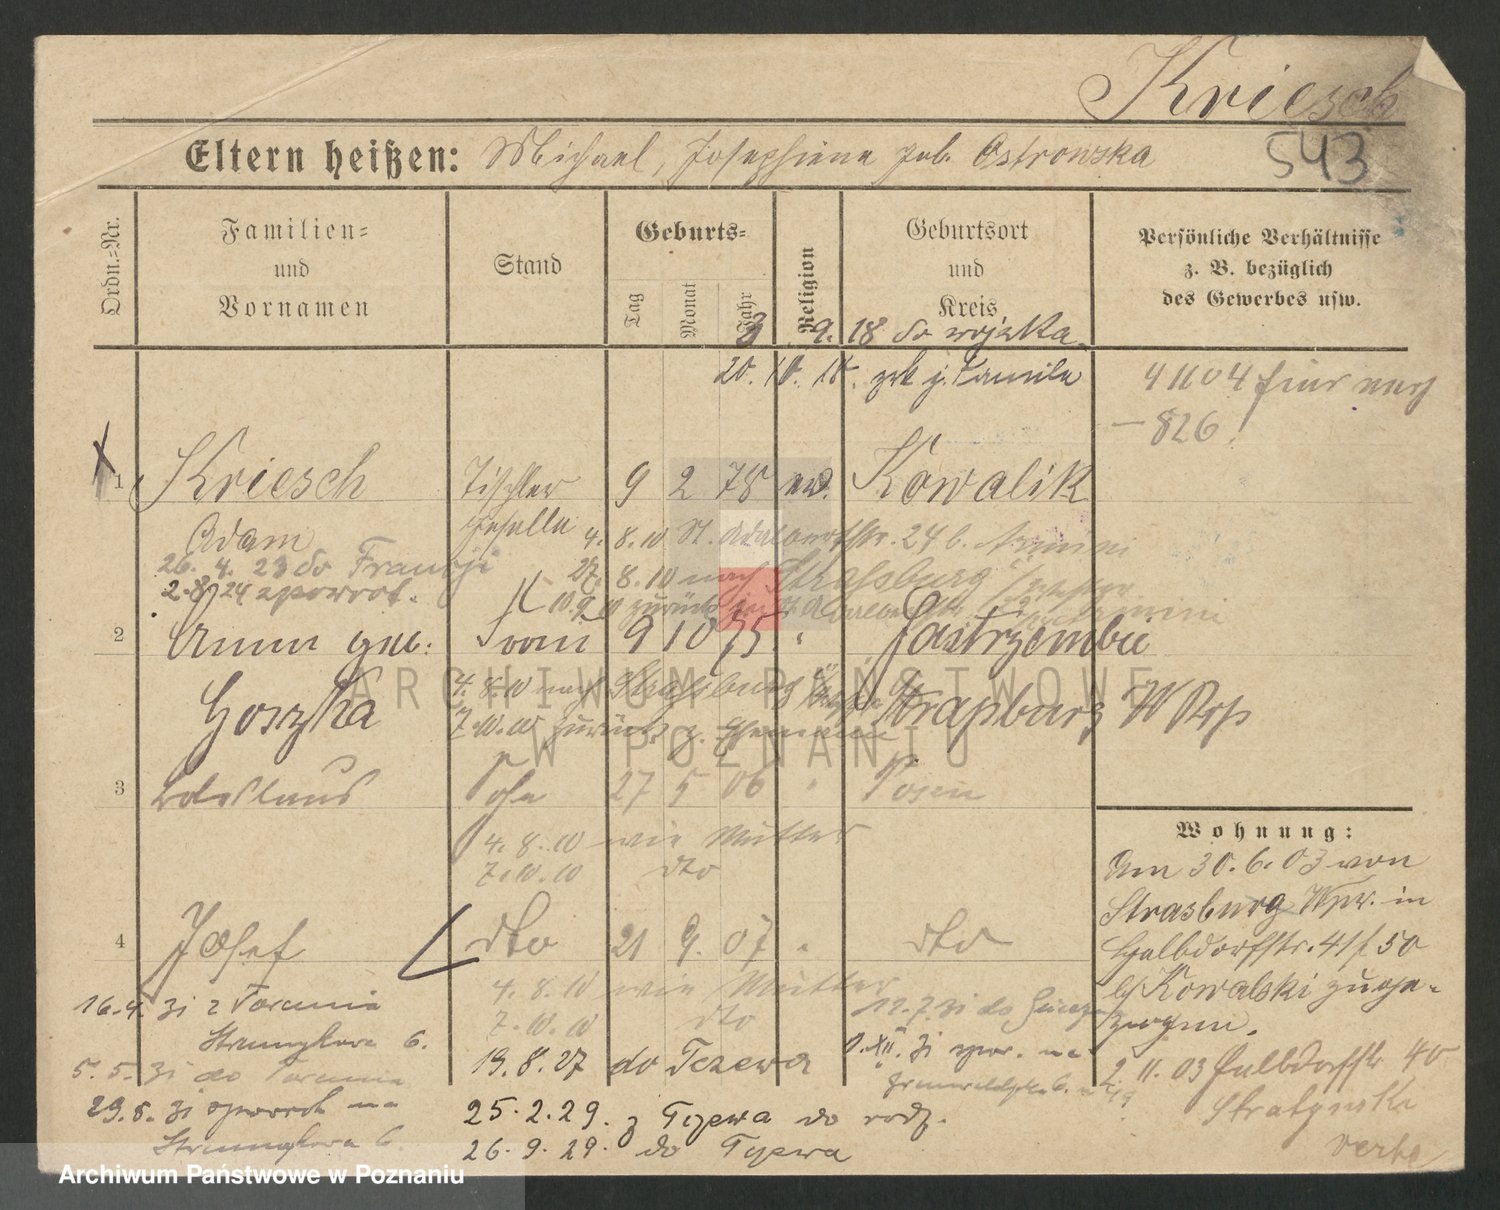 Kriesch
543
Eltern heißen: Michael, Josephine geb. Ostrowska
Ordn.=Nr.
Familien=
und
Vornamen
Stand
Geburts=
Tag
Monat
Jahr
Religion
Geburtsort
und
Kreis
Persönliche Verhältnisse
z. B. bezüglich
des Gewerbes usw.
9. 18 do wojska
20. 10. 18.
41104
826
1 Kriesch Tischler 9 2 78 Kowalik
Adam geselle
4. 8. 10 St. Adalbertstr. 24
26. 4. 23 do Francji
27. 8. 10 nach Strassburg
2. 8. 24 zpowrot.
10. 9. 10 zurück
2 Anna geb. Frau 9 10 75 Jastrzembie
Goszka Straßburg W Prß
4. 8. 10 nach Straßburg
7. 10. 10 zurück z. Ehemann
3 Ladislaus Sohn 27 5 06 Posen
4. 8. 10 wie Mutter
7. 10. 10 dto
4 Josef dto 21 9. 07 dto
4. 8. 10 wie Mutter
7. 10. 10 dto
16. 4. 31 z Torunia
6.
5. 5. 31 do Torunia
29. 8. 31 zpowrot na
6
19. 8. 27 do Tczewa
25. 2. 29. z Tczewa do rodz.
26. 9. 29. do Tczewa
12. 7. 31 do
Wohnung:
Am 30. 6. 03 von
Strasburg Wpr. in
Halbdorfstr. 41 / 50
b/ Kowalski zuge-
zogen.
2. 11. 03 Halbdorfstr 40
verte
ARCHIWUM PAŃSTWOWE
W POZNANIU
Archiwum Państwowe w Poznaniu